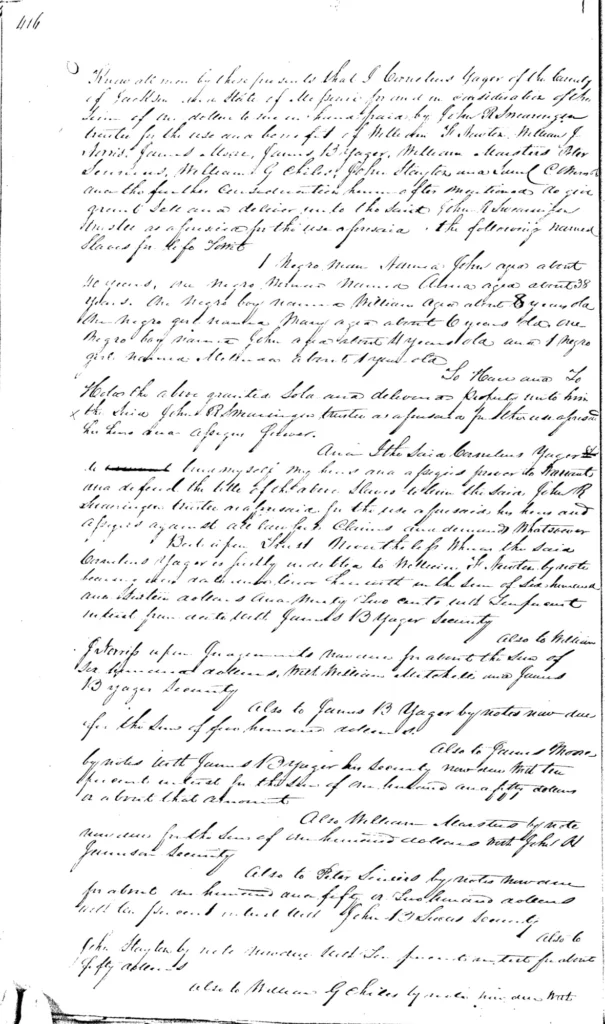 416
Know all men by these presents that I Cornelius Yager of the County
of Jackson and State of Missouri for and in consideration of the
Sum of one dollar to me in hand paid by John R Swearingen
trustee for the use and benefit of William H. Newton, William J
Norris, James Moore, James B Yager, William Marsters Peter
William G Childs, John Stayton and Saml C
and the further Consideration herein after mentioned do give
grant Sell and deliver unto the Said John R Swearingen
trustee as aforesaid for the use aforesaid the following named
Slaves for life Towit
1 Negro man Named John aged about
40 years, one negro woman named Anna aged about 38
years. One negro boy named William aged about 8 years old
One negro girl named Mary aged about 6 years old one
Negro boy named John aged about 4 years old and 1 Negro
girl named about 1 year old
To Have and To
Hold the above granted Sold and delivered property unto him
x the Said John R Swearingen trustee as aforesaid for the use aforesaid
his heirs and assigns forever.
And I the said Cornelius Yager
do bind myself my heirs and assigns forever to Warrant
and defend the title of the above Slaves to him the said John R
Swearingen trustee as aforesaid for the use aforesaid his heirs and
assigns against all lawful Claims and demands Whatsoever
But upon Trust Nevertheless Where the said
Cornelius Yager is justly indebted to William H. Newton by note
bearing even date herewith in the sum of Six hundred
and dollars and Ninety Two cents with Ten per cent
interest from date with James B Yager Security
Also to William
J Norris upon Judgements now due for about the Sum of
Six hundred dollars, With William Mitchell and James
B Yager Security
Also to James B Yager by notes now due
for the Sum of five hundred dollars.
Also to James Moore
by notes with James B Yager his Security now due With ten
per cent interest for the sum of one hundred and fifty dollars
or about that amount
Also William Marsters by note
now due for the Sum of one hundred dollars with John H
Jameson Security
Also to Peter by notes now due
for about one hundred and fifty or Two hundred dollars
with ten per cent interest with John B Security
Also to
John Stayton by note now due With Ten per cent interest for about
fifty dollars
also to William G Childs by note now due With